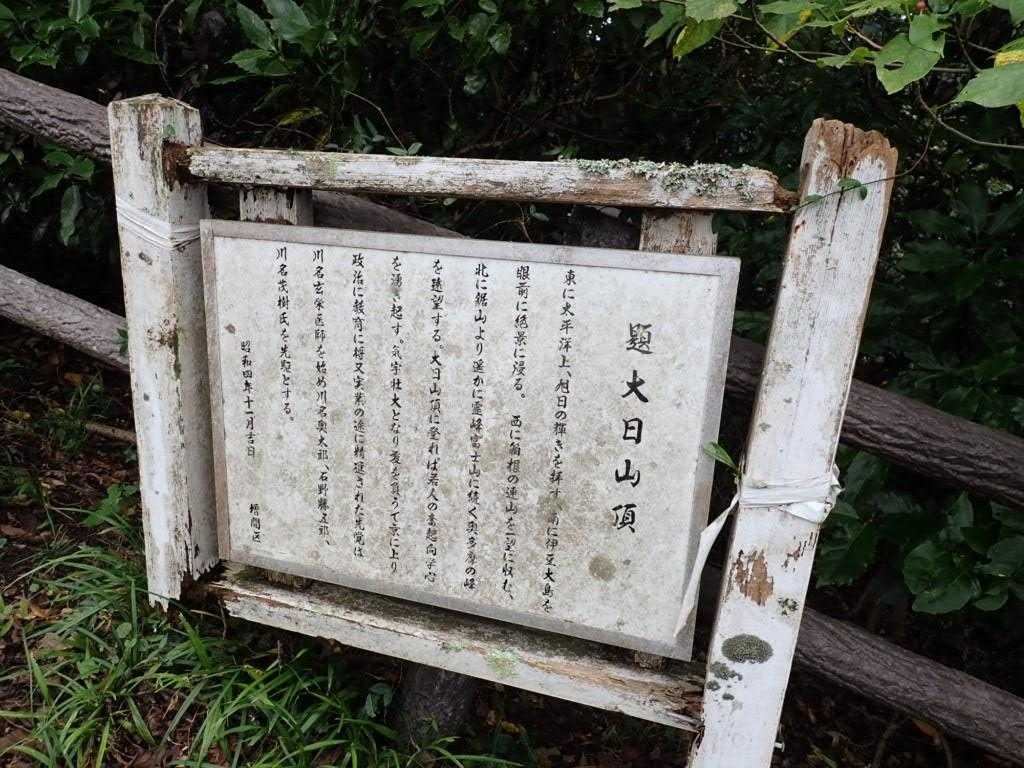 題大日山頂
東に太平洋上、旭日の輝きを拝す 南に伊豆大島を
眼前に絶景に浸る。 西に箱根の連山を一望に収む、
北に鋸山より遥かに霊峰富士山に続く奥多摩の峰
を遠望する。大日山頂に登れば若人の高想向学心
を湧き起す。気宇壮大となり笈を負うて京に上り
政治に教育に将又実業の途に精進された先覚は
川名玄栄医師を始め川名奥太郎、石野勝五郎、
川名茂樹氏を先駆とする。
昭和四年十一月吉日 増間区